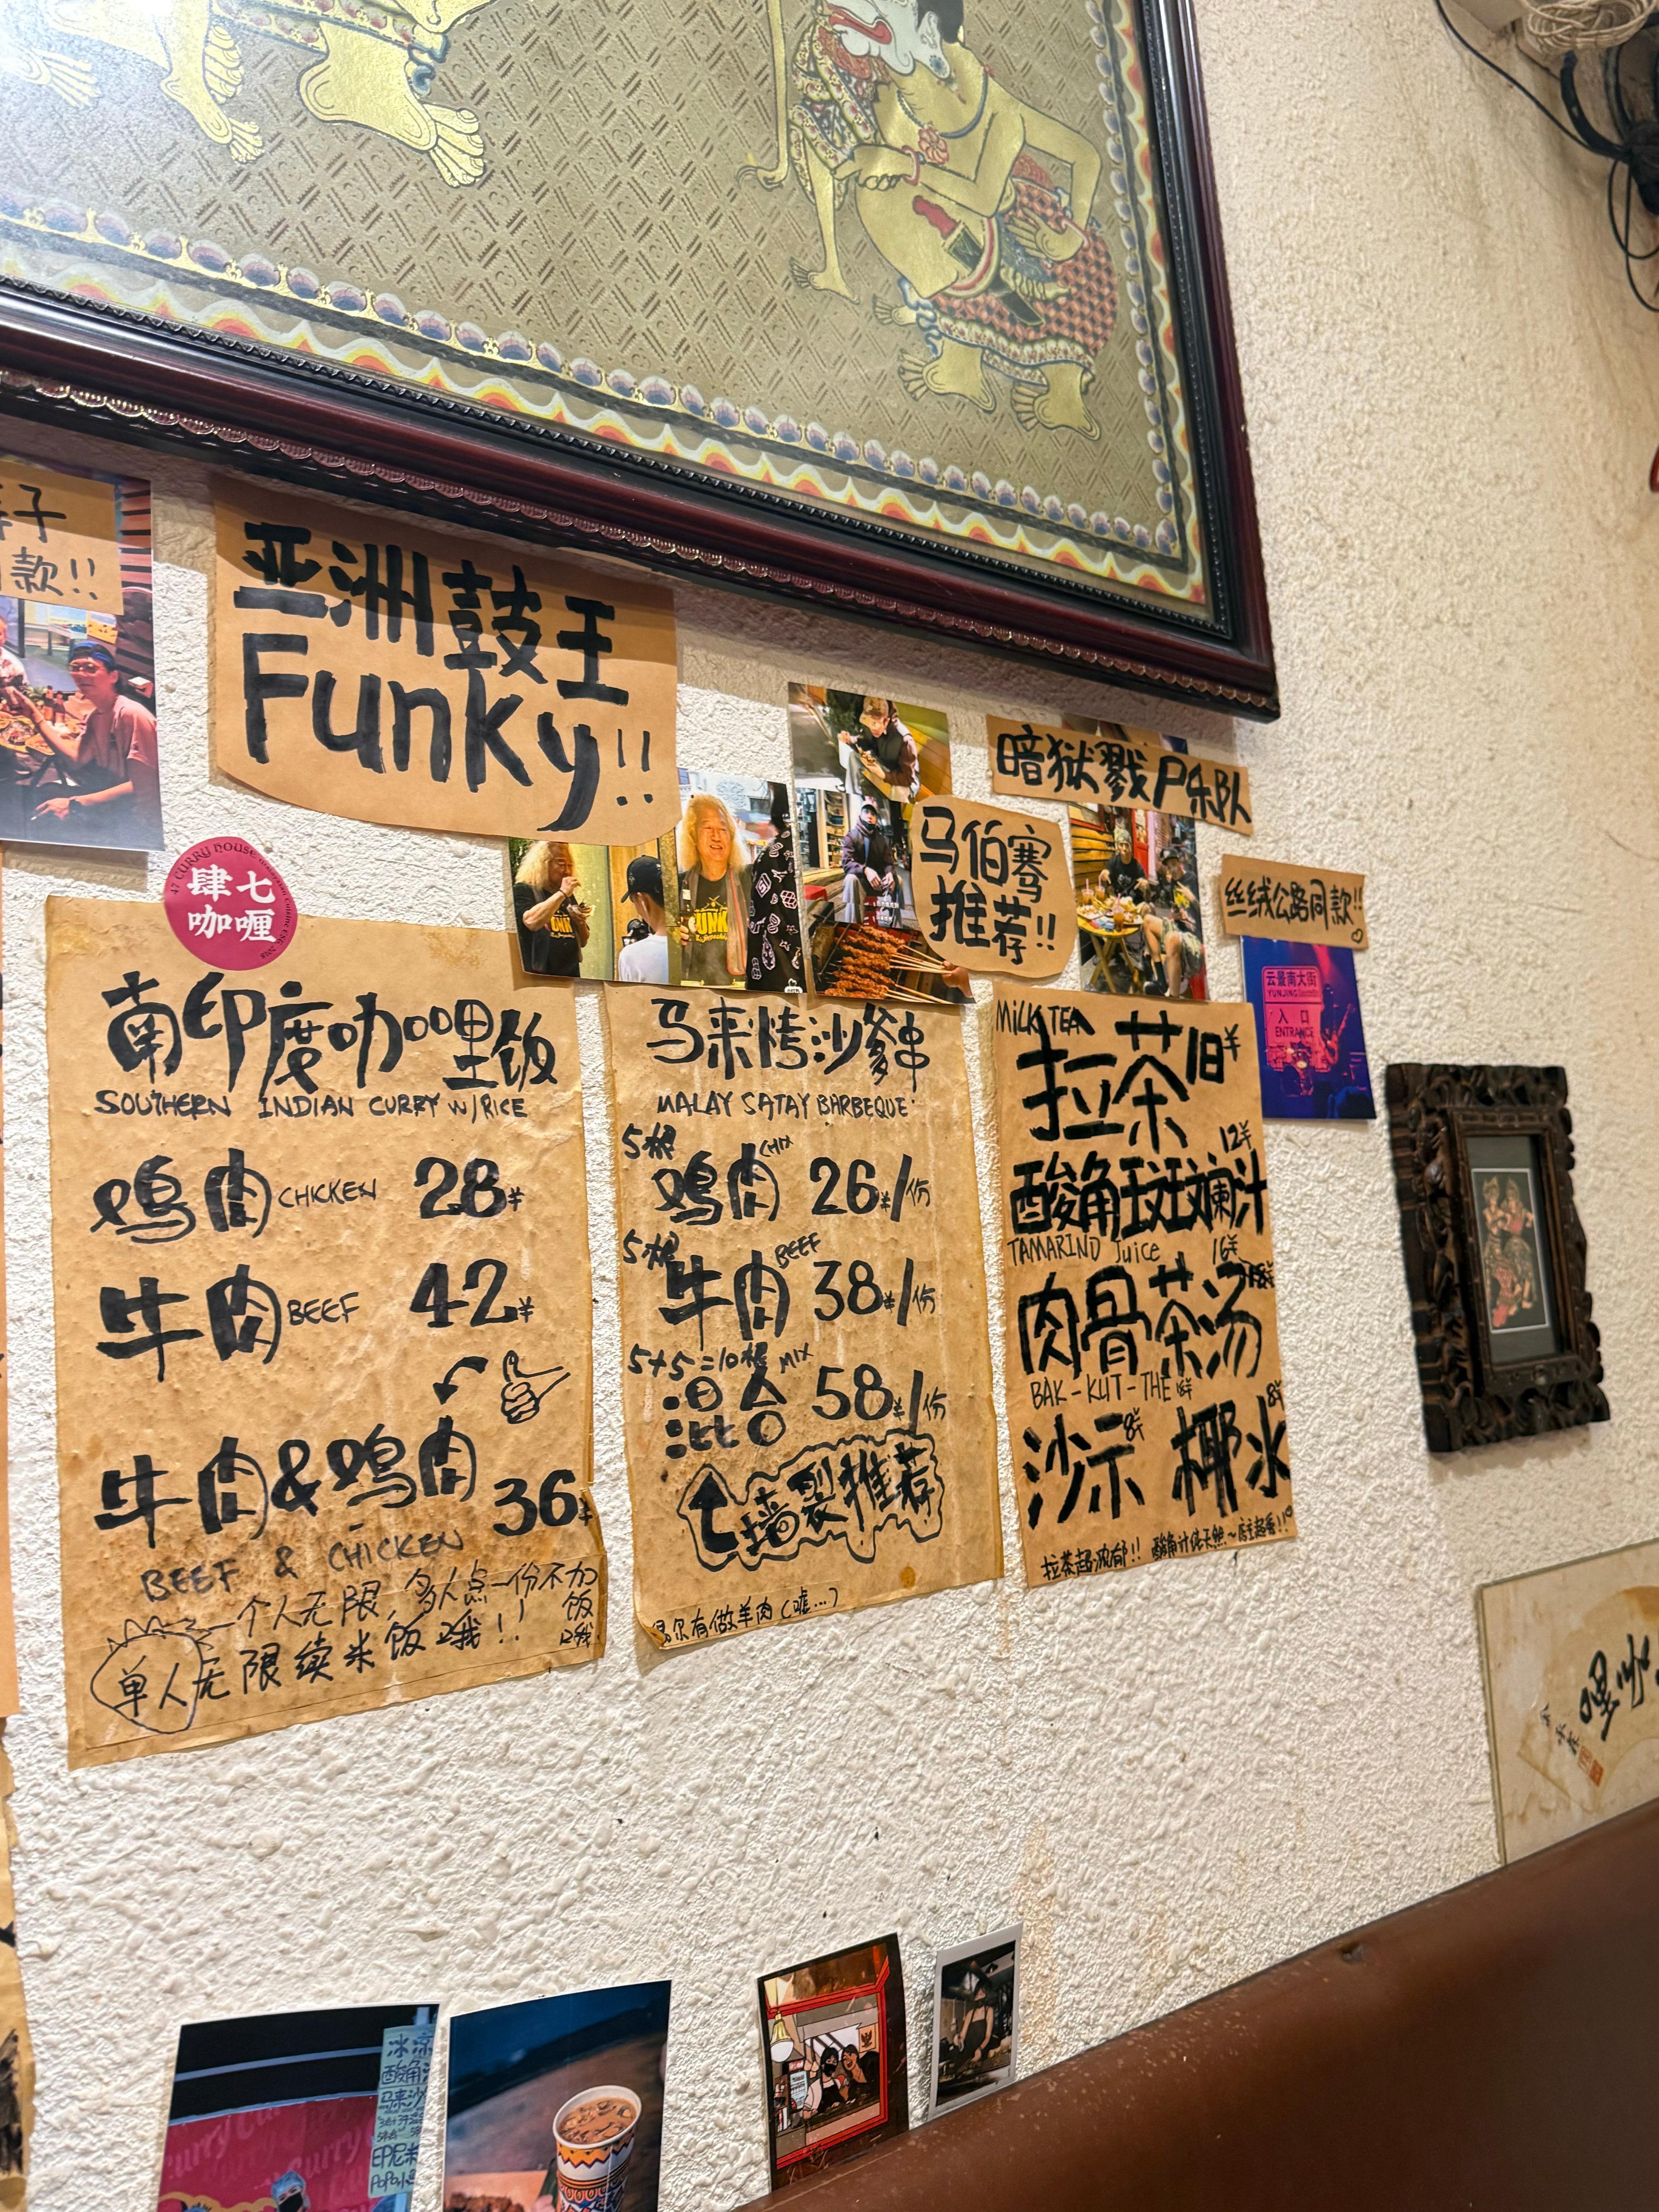 款!!
亚洲鼓王
Funky!!
暗狱戮尸乐队
马伯骞
推荐!!
丝绒公路同款!!
云景南大街
入口
ENTRANCE
47 CURRY HOUSE
肆七
咖喱
南印度咖喱饭
SOUTHERN INDIAN CURRY W/RICE
鸡肉 CHICKEN 28¥
牛肉 BEEF 42¥
牛肉&鸡肉 36¥
BEEF & CHICKEN
一个人无限,多人点一份不加
饭
单人无限续米饭哦!!
马来烤沙爹串
MALAY SATAY BARBEQUE
5根
鸡肉 26¥/份
5根
牛肉 BEEF 38¥/份
5+5=10根 MIX
混合 58¥/份
墙裂推荐
偶尔有做羊肉(嘘...)
MiLK TEA
拉茶 18¥
12¥
酸角斑斓汁
TAMARIND Juice
16¥
肉骨茶汤
BAK-KUT-THE
沙示 8¥ 椰水
拉茶超浓郁!! 酸角汁纯天然~
冰凉